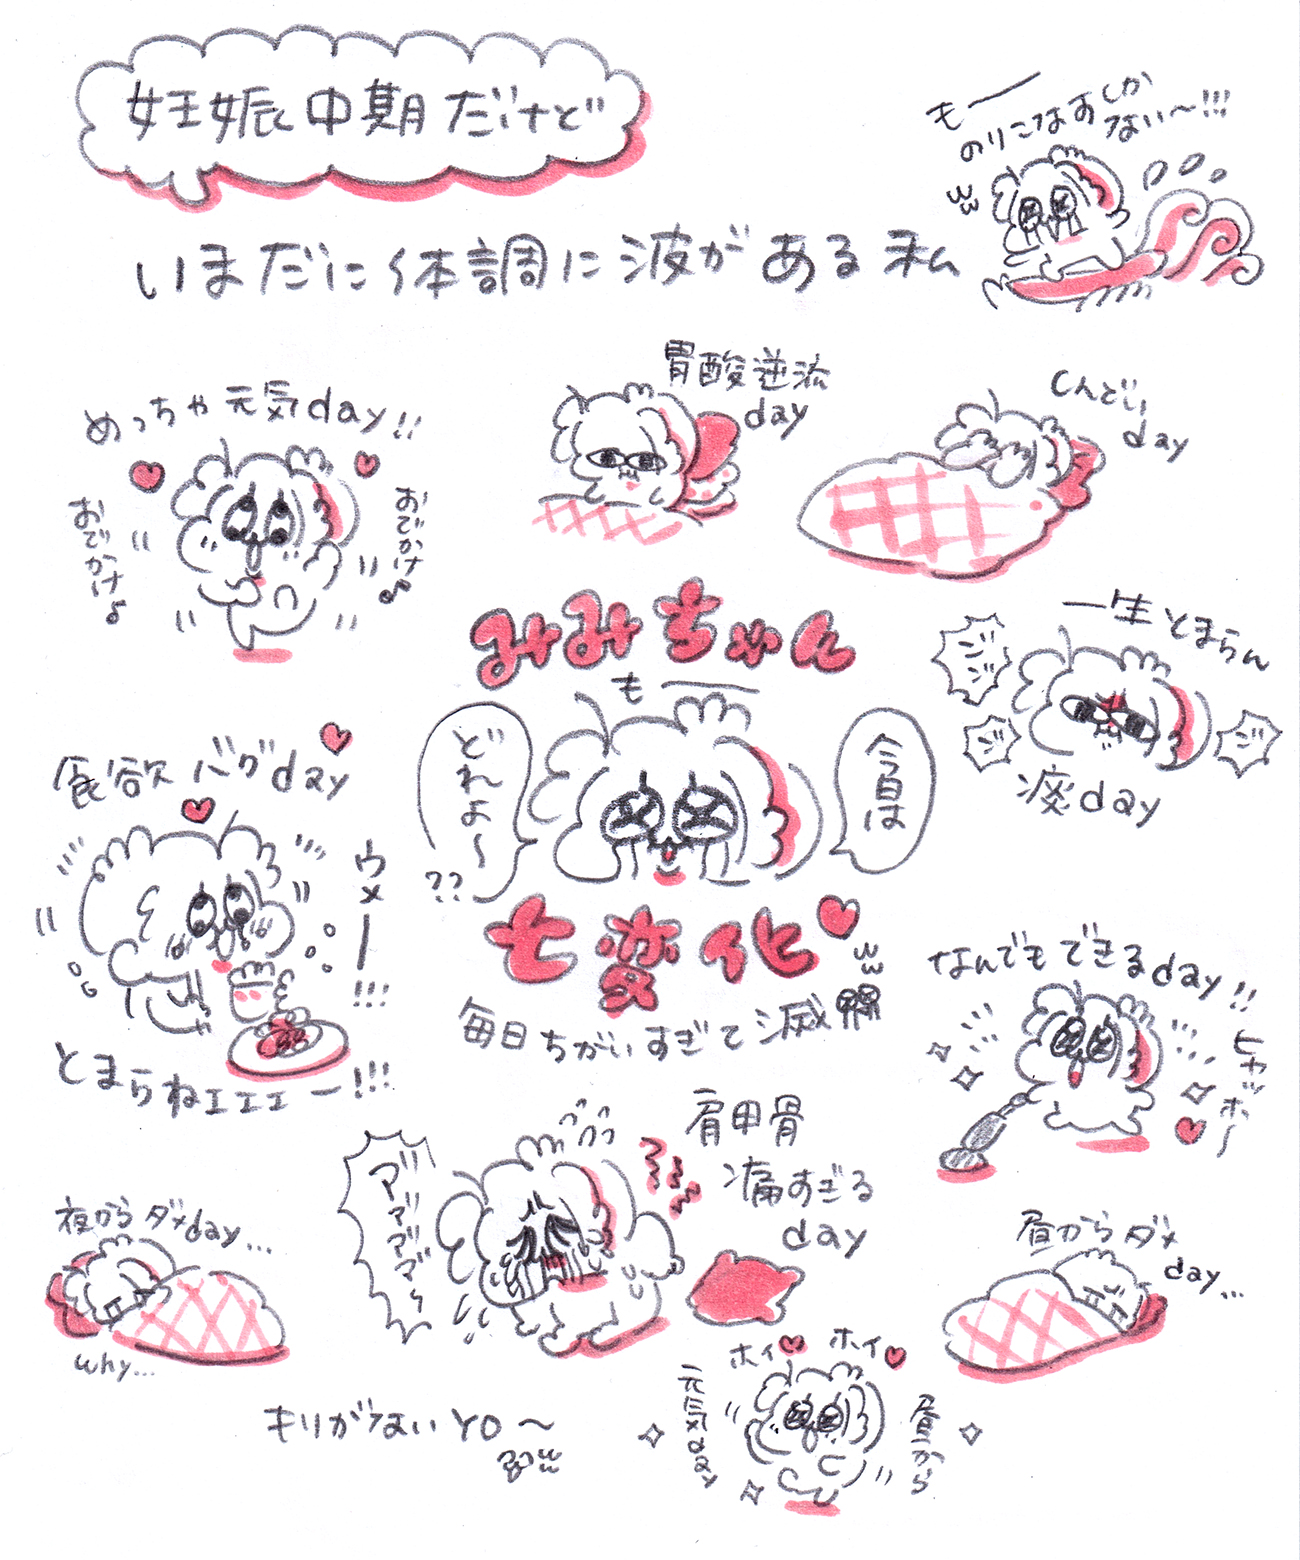 妊娠中期だけど
いまだに体調に波がある私
もー
のりこなすしか
ない〜!!!
めっちゃ元気day!!
おでかけ♪
おでかけ♪
胃酸逆流
day
しんどい
day
みみちゃん
も
今日は
どれよ〜
??
七変化
毎日ちがいすぎて滅
一生とまらん
痰day
食欲バグday
ウメー!!!
とまらねェェェー!!!
なんでもできるday!!
ヒャッホ〜
肩甲骨
痛すぎる
day
夜からダメday...
why...
昼からダメ
day...
ホイ ホイ
昼から
元気day
キリがないYO〜